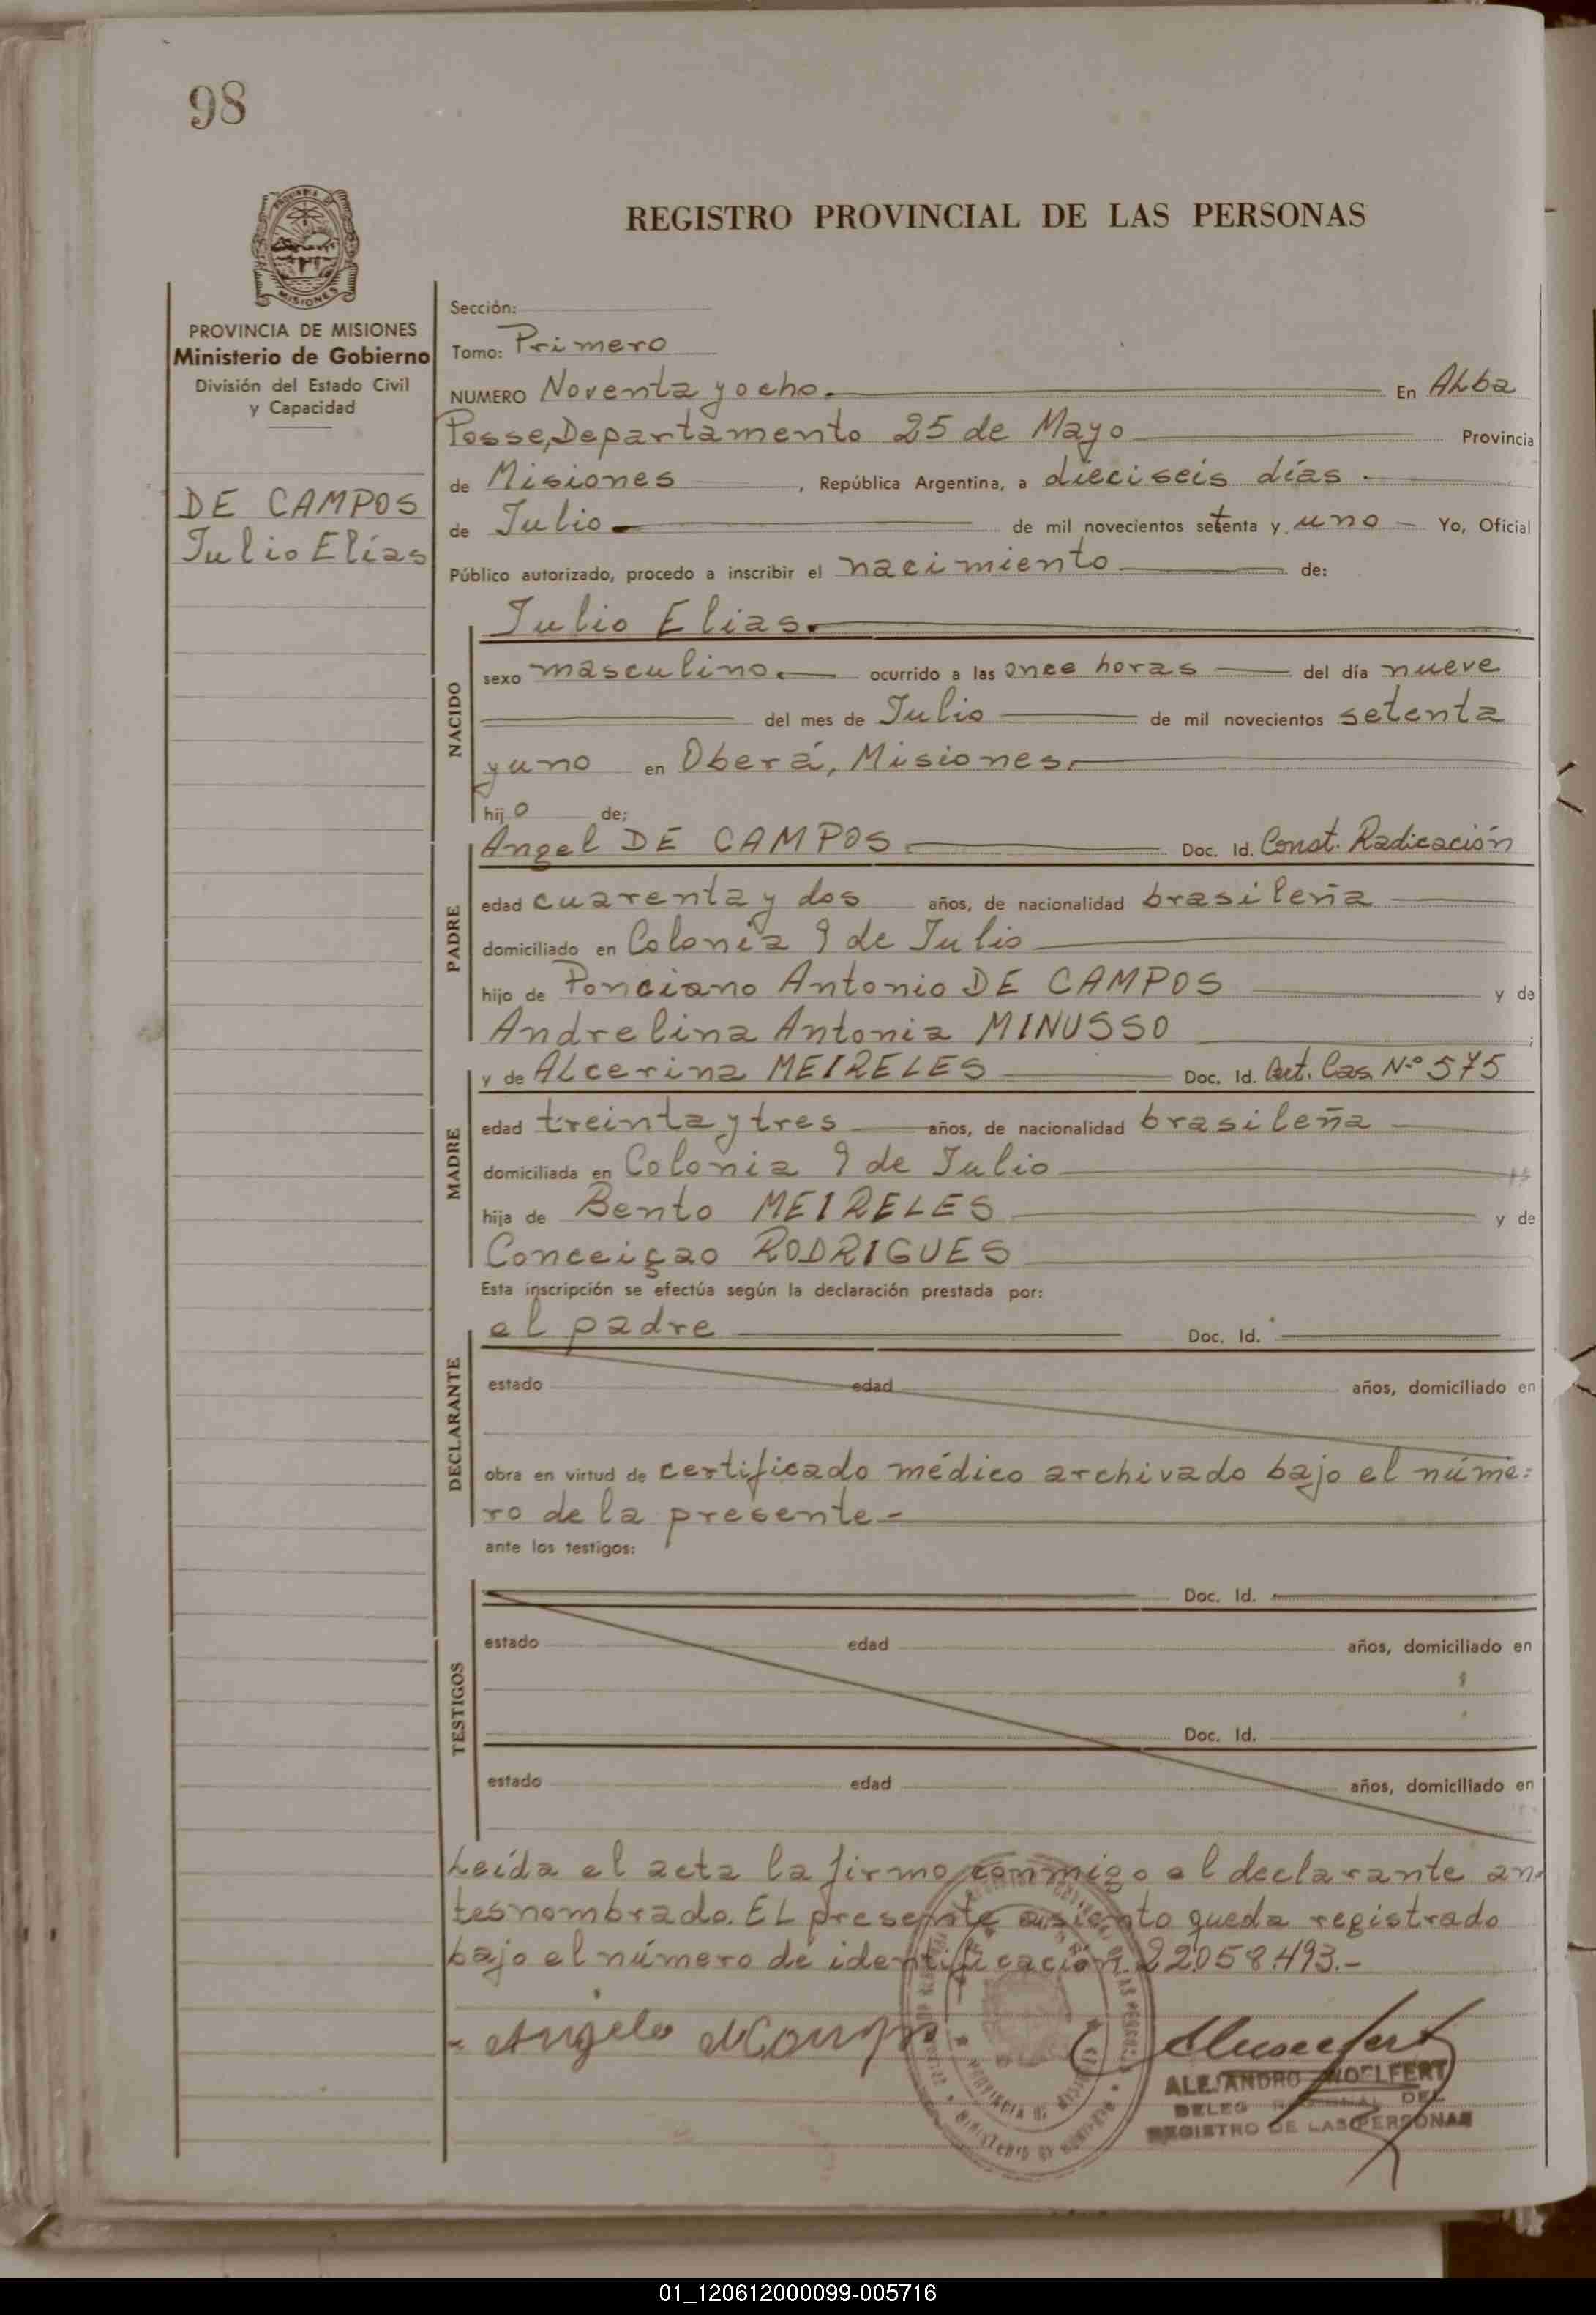 98
REGISTRO PROVINCIAL DE LAS PERSONAS
MISIONES
PROVINCIA DE MISIONES
Ministerio de Gobierno
División del Estado Civil
y Capacidad
DE CAMPOS
Julio Elías
Sección:
Tomo: Primero
NUMERO Noventa y ocho. En Alba
Posse, Departamento 25 de Mayo Provincia
de Misiones , República Argentina, a dieciseis días
de Julio de mil novecientos setenta y uno Yo, Oficial
Público autorizado, procedo a inscribir el nacimiento de:
NACIDO
Julio Elias.
sexo masculino. ocurrido a las once horas del día nueve
del mes de Julio de mil novecientos setenta
y uno en Oberá, Misiones.
hijo de;
PADRE
Angel DE CAMPOS Doc. Id. Const. Radicación
edad cuarenta y dos años, de nacionalidad brasileña
domiciliado en Colonia 9 de Julio
hijo de Ponciano Antonio DE CAMPOS y de
Andrelina Antonia MINUSSO ;
MADRE
y de Alcerina MEIRELES Doc. Id. Cert. Cas. Nº 575
edad treinta y tres años, de nacionalidad brasileña
domiciliada en Colonia 9 de Julio
hija de Bento MEIRELES y de
Conceiçao RODRIGUES
Esta inscripción se efectúa según la declaración prestada por:
DECLARANTE
el padre Doc. Id.
estado edad años, domiciliado en
obra en virtud de certificado médico archivado bajo el núme=
ro de la presente.-
ante los testigos:
TESTIGOS
Doc. Id.
estado edad años, domiciliado en
Doc. Id.
estado edad años, domiciliado en
Leída el acta la firmo conmigo el declarante an-
tesnombrado. El presente asiento queda registrado
bajo el número de identificación 22.058.493.-
Angelo
PROVINCIA DE MISIONES
MINISTERIO DE GOBIERNO
ALEJANDRO WOELFERT
DELEG DEL
REGISTRO DE LAS PERSONAS
01_120612000099-005716